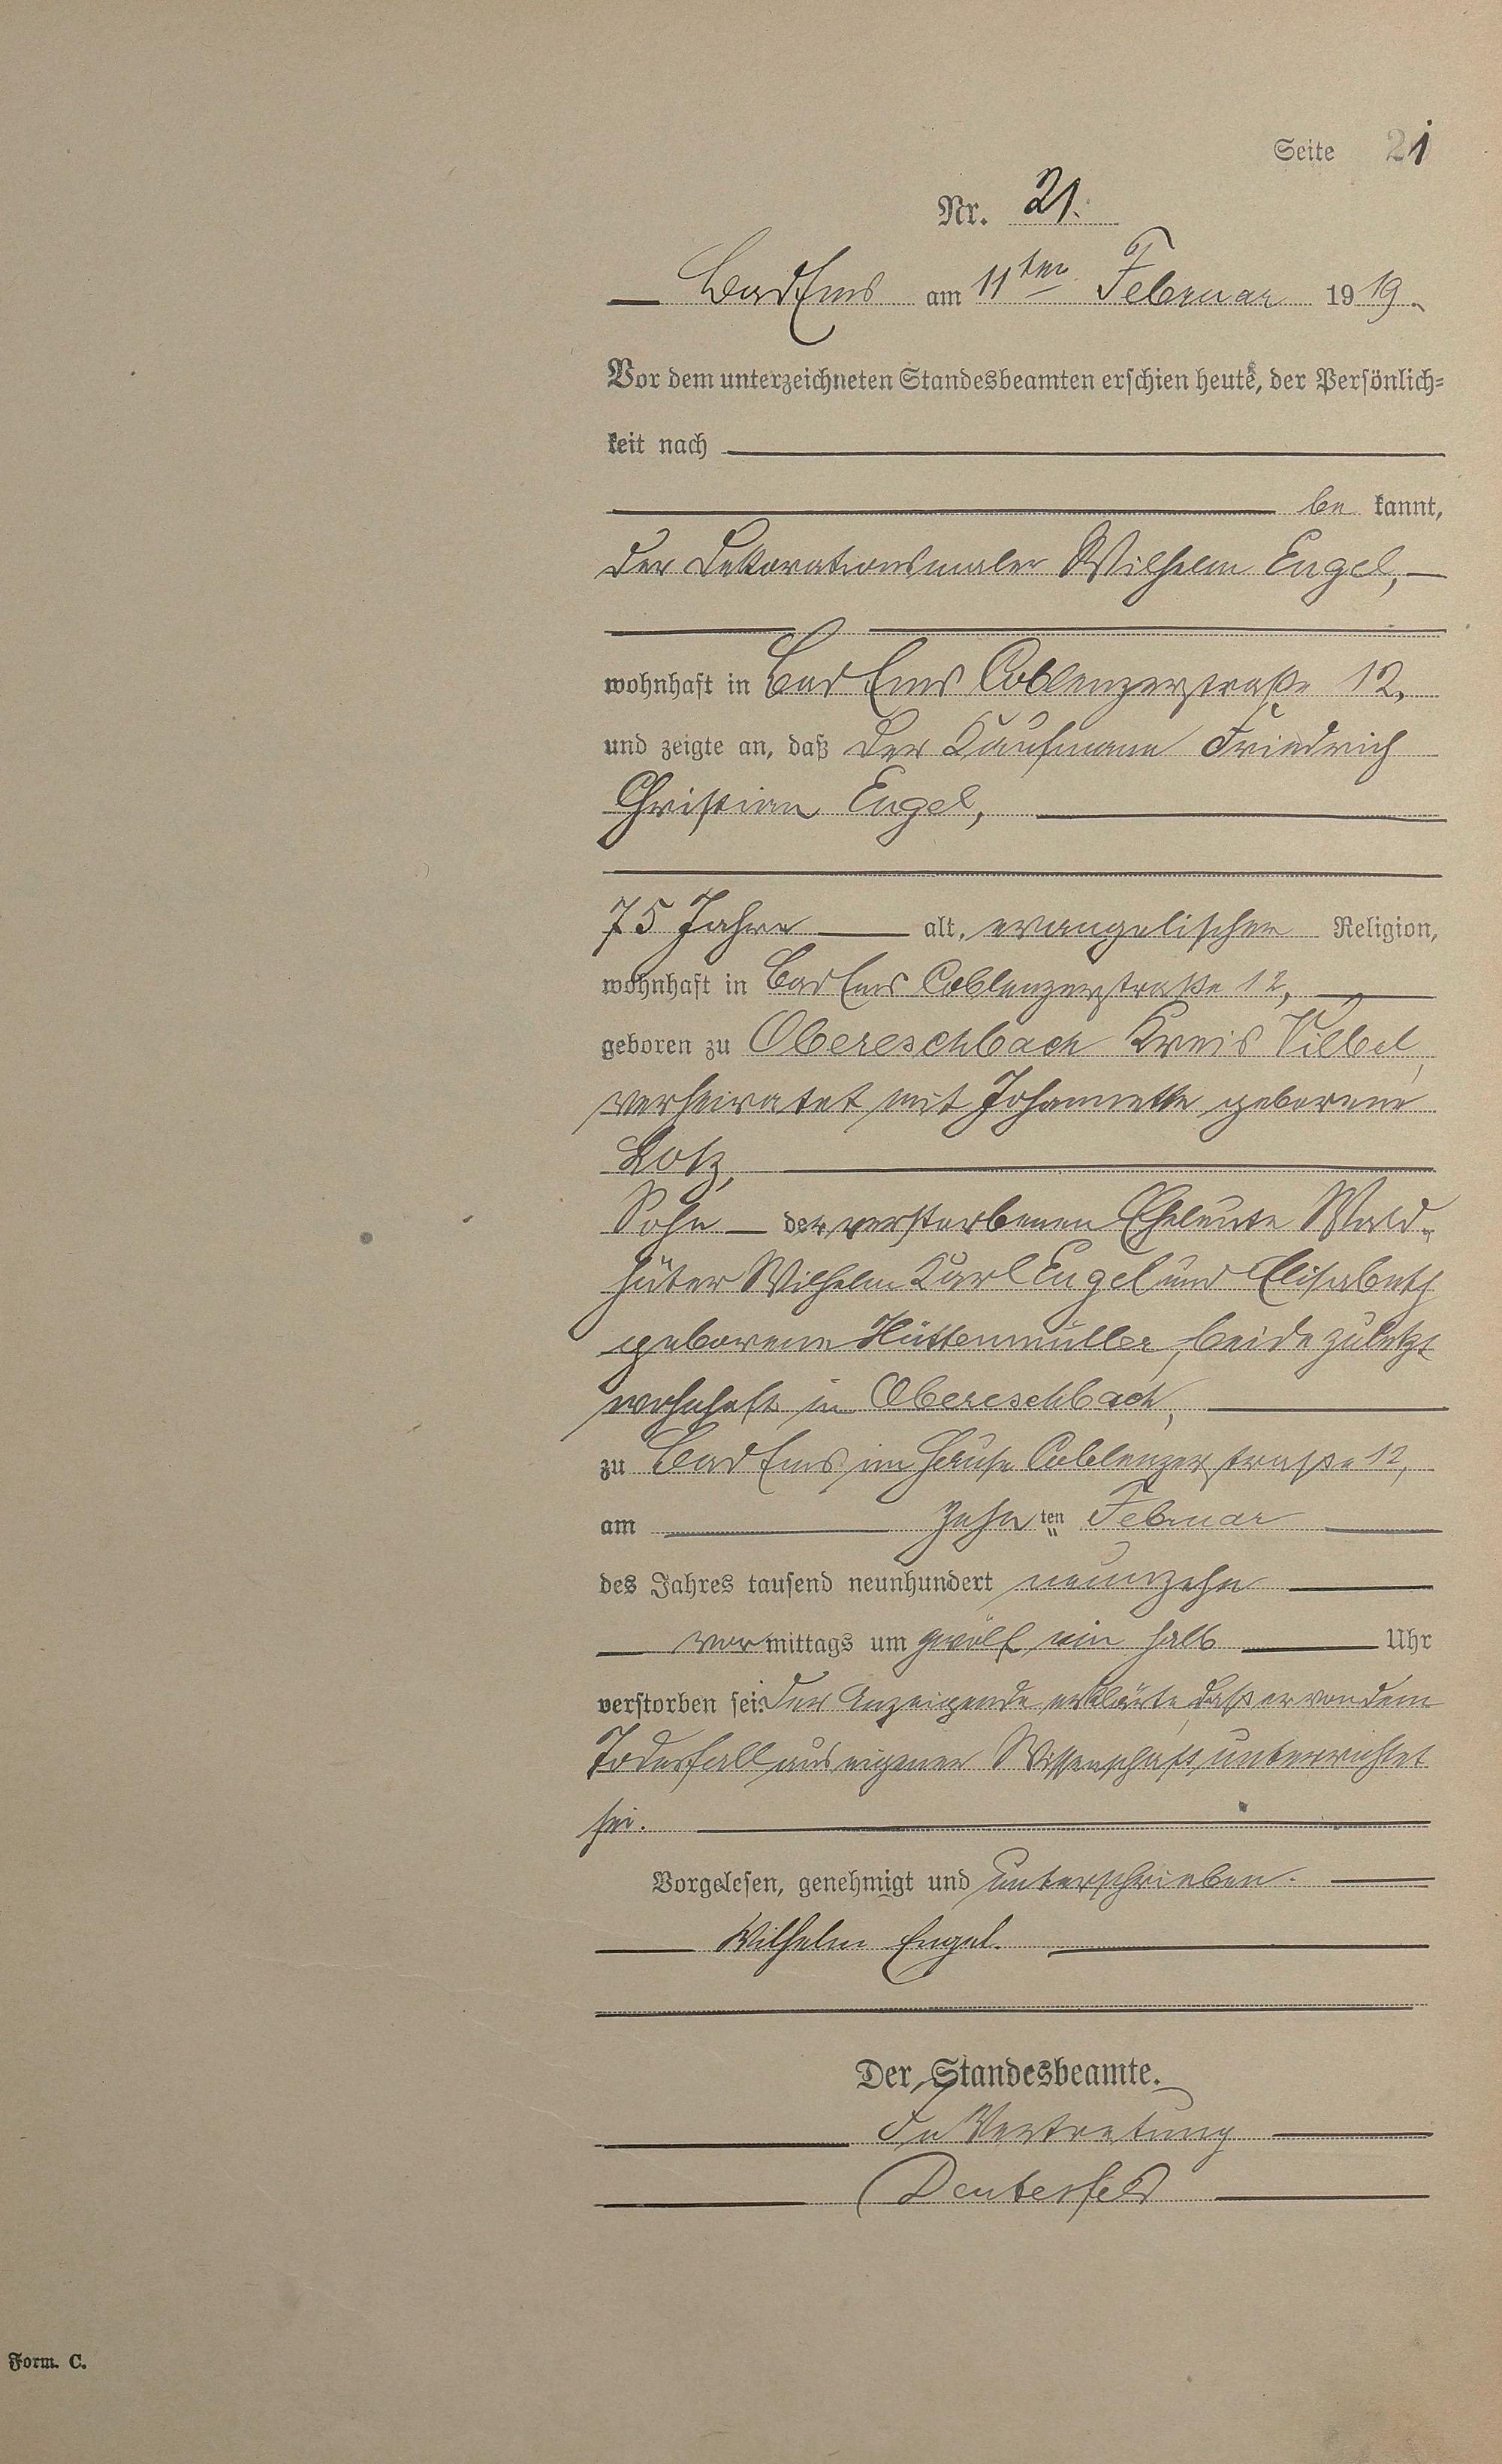 Seite 21
Nr. 21.
Bad Ems am 11ten Februar 1919.
Vor dem unterzeichneten Standesbeamten erschien heute, der Persönlich=
keit nach
be kannt,
der Dekorationsmaler Wilhelm Engel,
wohnhaft in Bad Ems Coblenzerstraße 12,
und zeigte an, daß der Kaufmann Friedrich
Christian Engel,
75 Jahre alt, evangelischer Religion,
wohnhaft in Bad Ems Coblenzerstraße 12,
geboren zu Obereschbach Kreis Vilbel,
verheiratet mit Johannette geborene
Lotz,
Sohn der verstorbenen Eheleute Wald-
hüter Wilhelm Karl Engel und Elisabeth
geborene Hüttenmüller, beide zuletzt
wohnhaft in Obereschbach,
zu Bad Ems im Hause Coblenzerstraße 12,
am zehnten Februar
des Jahres tausend neunhundert neunzehn
vormittags um zwölf ein halb Uhr
verstorben sei. Der Anzeigende erklärte, daß er von dem
Todesfall aus eigener Wissenschaft unterrichtet
sei.
Vorgelesen, genehmigt und unterschrieben.
Wilhelm Engel.
Der Standesbeamte.
In Vertretung
Form. C.